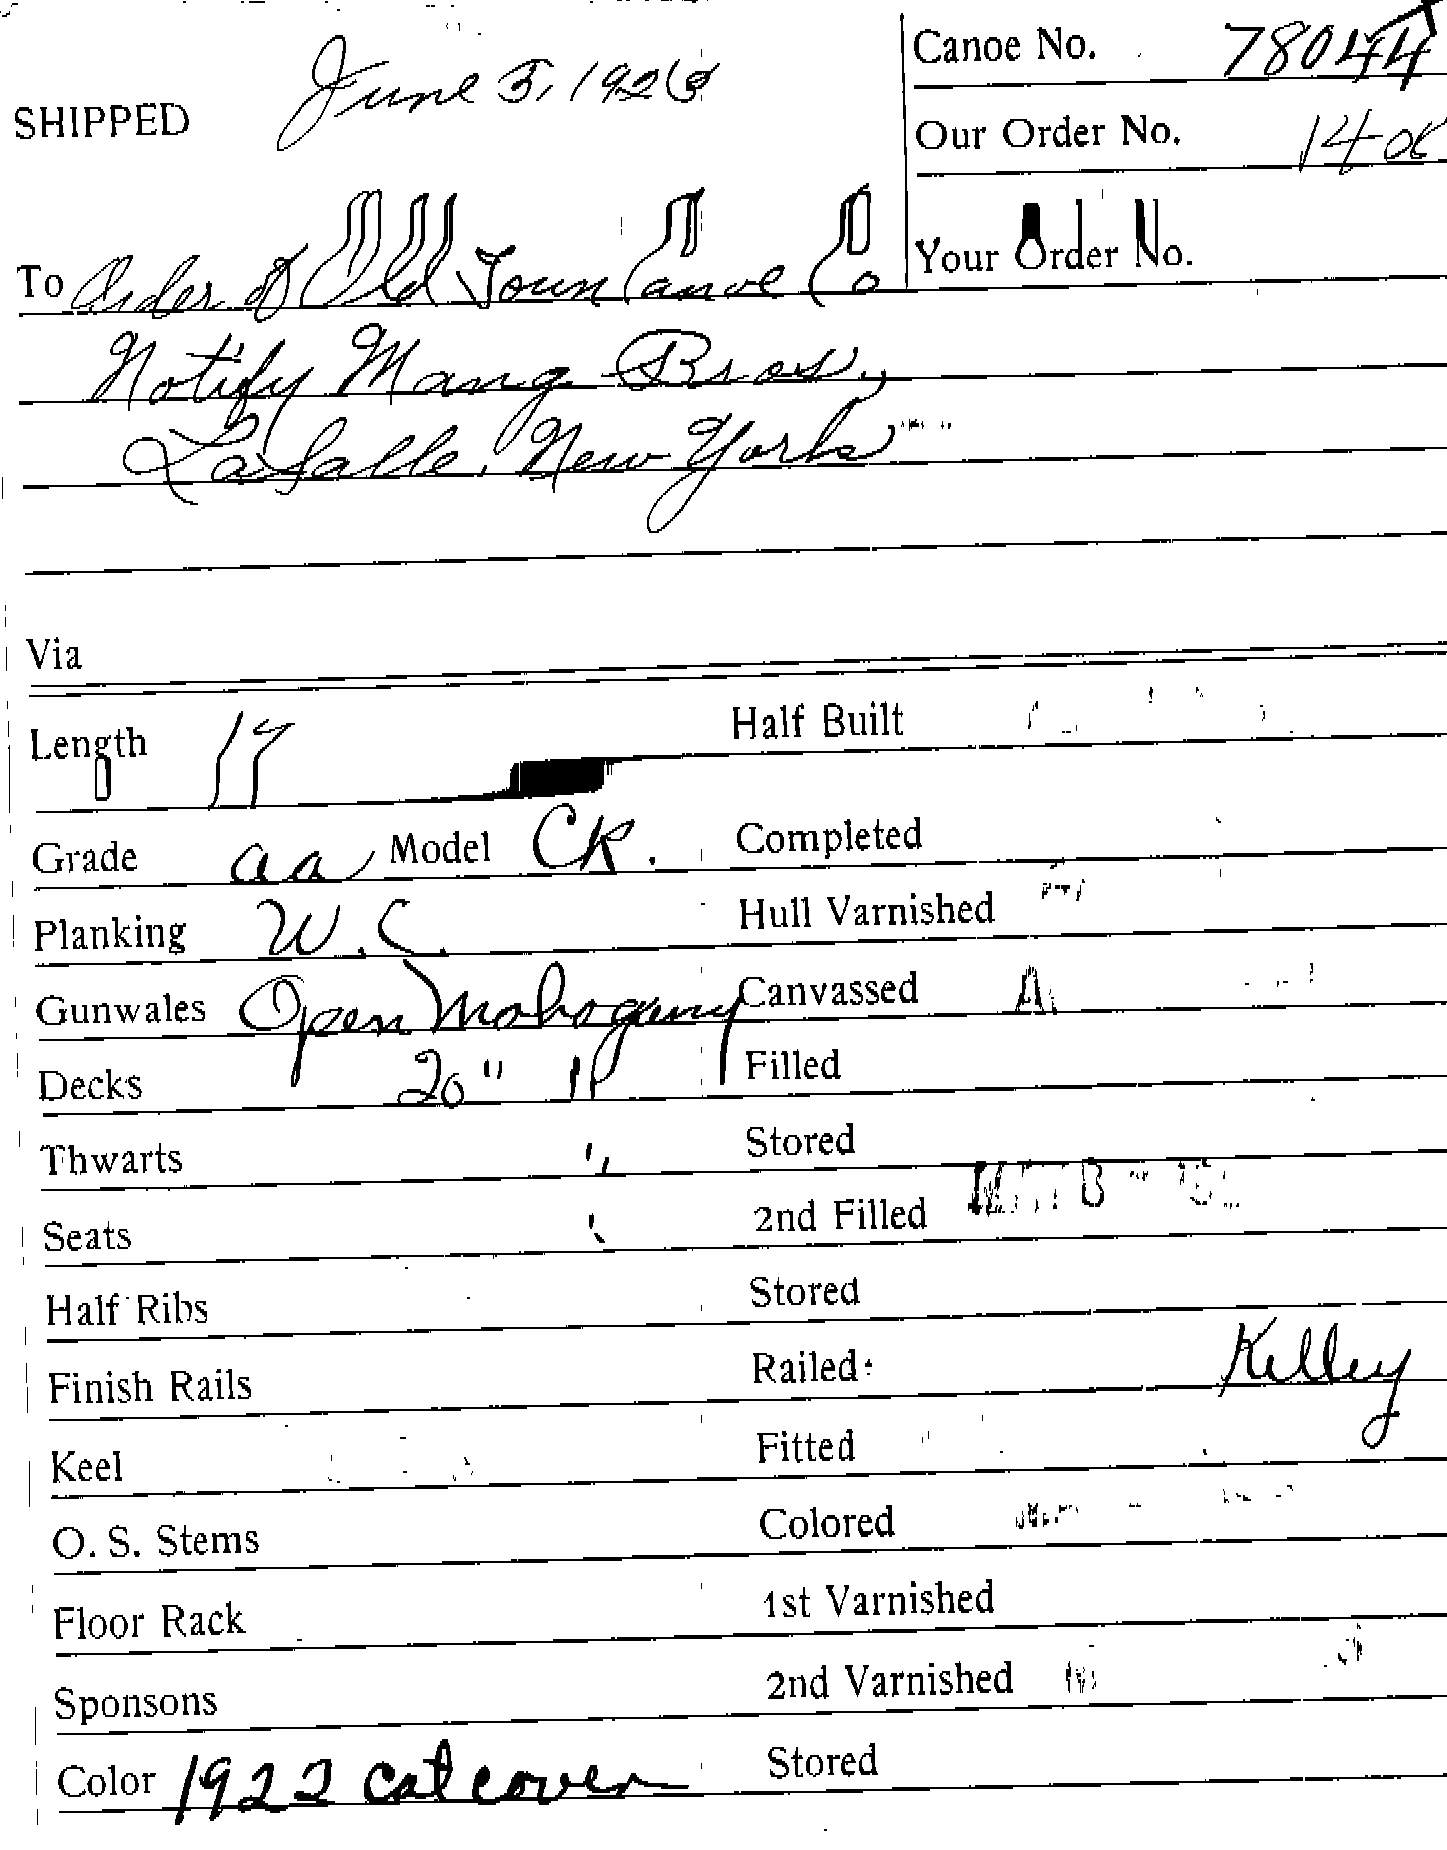 SHIPPED June 5, 1923
Canoe No. 78044
Our Order No. 140
Your Order No.
To Order of Old Town Canoe Co
Notify Mang Bros.,
LaSalle, New York
Via
Length 17 Half Built
Grade aa Model CK. Completed
Planking W.C. Hull Varnished
Gunwales Open Mahogany Canvassed
Decks 20" " Filled
Thwarts " Stored
Seats " 2nd Filled
Half Ribs Stored
Finish Rails Railed Kelley
Keel Fitted
O. S. Stems Colored
Floor Rack 1st Varnished
Sponsons 2nd Varnished
Color 1922 cat cover Stored